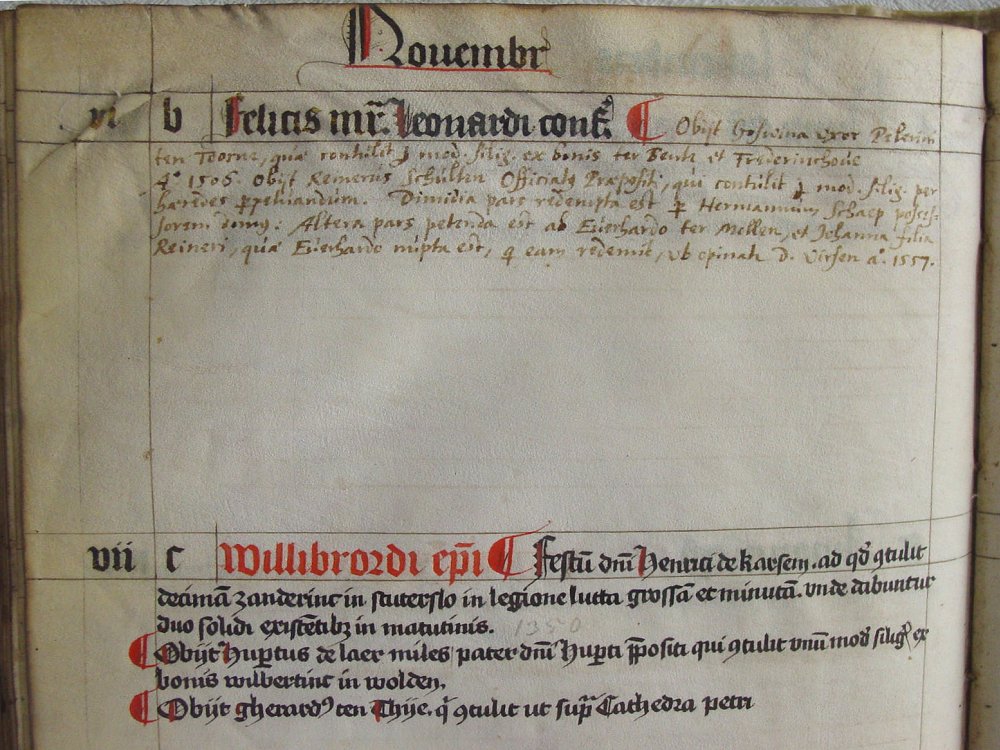 Nouembr
vi b Felicis mr̄. Leonardi conf̄. Obijt Goswina vxor Pelerim
ten Toorne, quæ contulit j mod. silig. ex bonis ter Bente et Frederinchoue
Aº 1506. Obijt Remerus Schulten Officialis Præpositi, qui contulit j mod. silig. per
hæredes perpetuandum. Dimidia pars redempta est p Hermannum Schaep posses-
sorem domus: Altera pars petenda est ab Euerhardo ter Mollen, et Jehanna filia
Reineri, quæ Euerhardo nupta est, q eam redemit, vb opinatr D. Vrsen aº. 1557.
vii c Willibrordi ep̄i Festū dn̄i Henrici de karsem. ad qd̄ ꝯtulit
decimā zanderinc in stuterslo in legione lutta grossā et minutā. vnde dabuntur
duo solidi existētibꝫ in matutinis. 1350
Obijt Hupertus de laer miles pater dn̄i Huperti p̄positi qui ꝯtulit vnū mod̄ siliḡ ex
bonis wilbertinc in wolden.
Obijt gherardꝰ ten Thije. q̄ ꝯtulit ut supra Cathedra petri